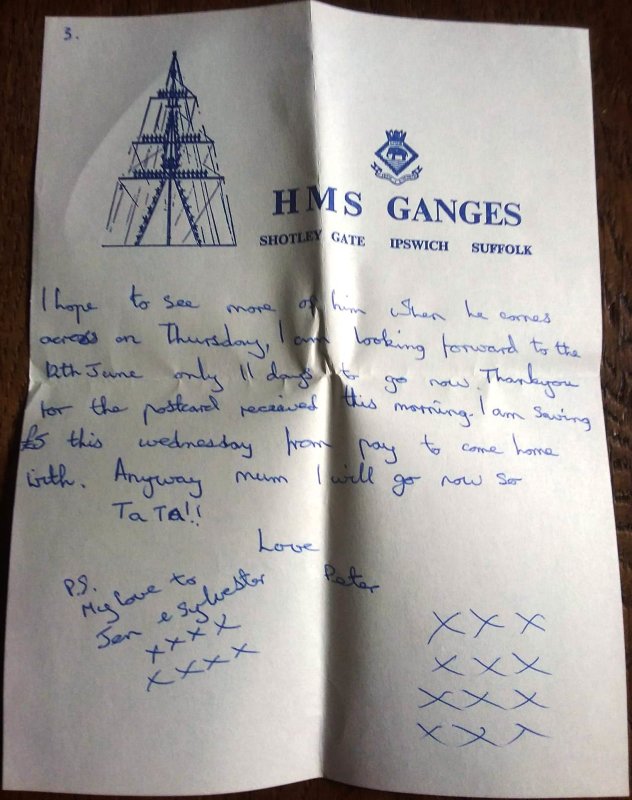 3.
HMS GANGES
SHOTLEY GATE IPSWICH SUFFOLK
I hope to see more of him when he comes
across on Thursday, I am looking forward to the
12th June only 11 days to go now. Thankyou
for the postcard received this morning. I am saving
£5 this wednesday from pay to come home
with. Anyway mum I will go now so
Ta Ta!!
Love
Peter
P.S.
My love to
Jen & Sylvester
X X X X
X X X X
X X X
X X X
X X X
X X X